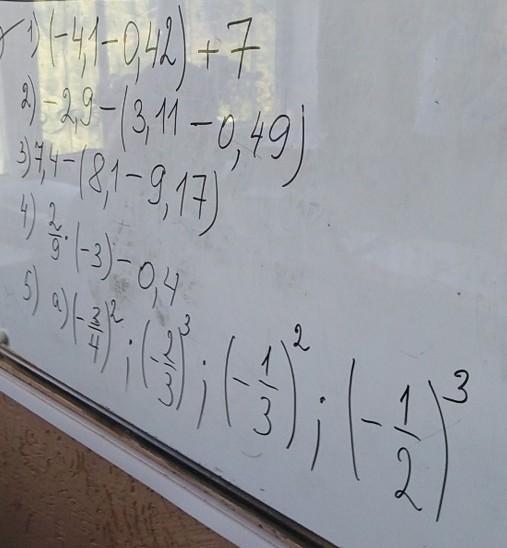 1) (-4,1-0,42)+7
2) -2,9-(3,11-0,49)
3) 7,4-(8,1-9,17)
4) 2/9·(-3)-0,4
5) a) (-3/4)²; (-2/3)³; (-1/3)²; (-1/2)³